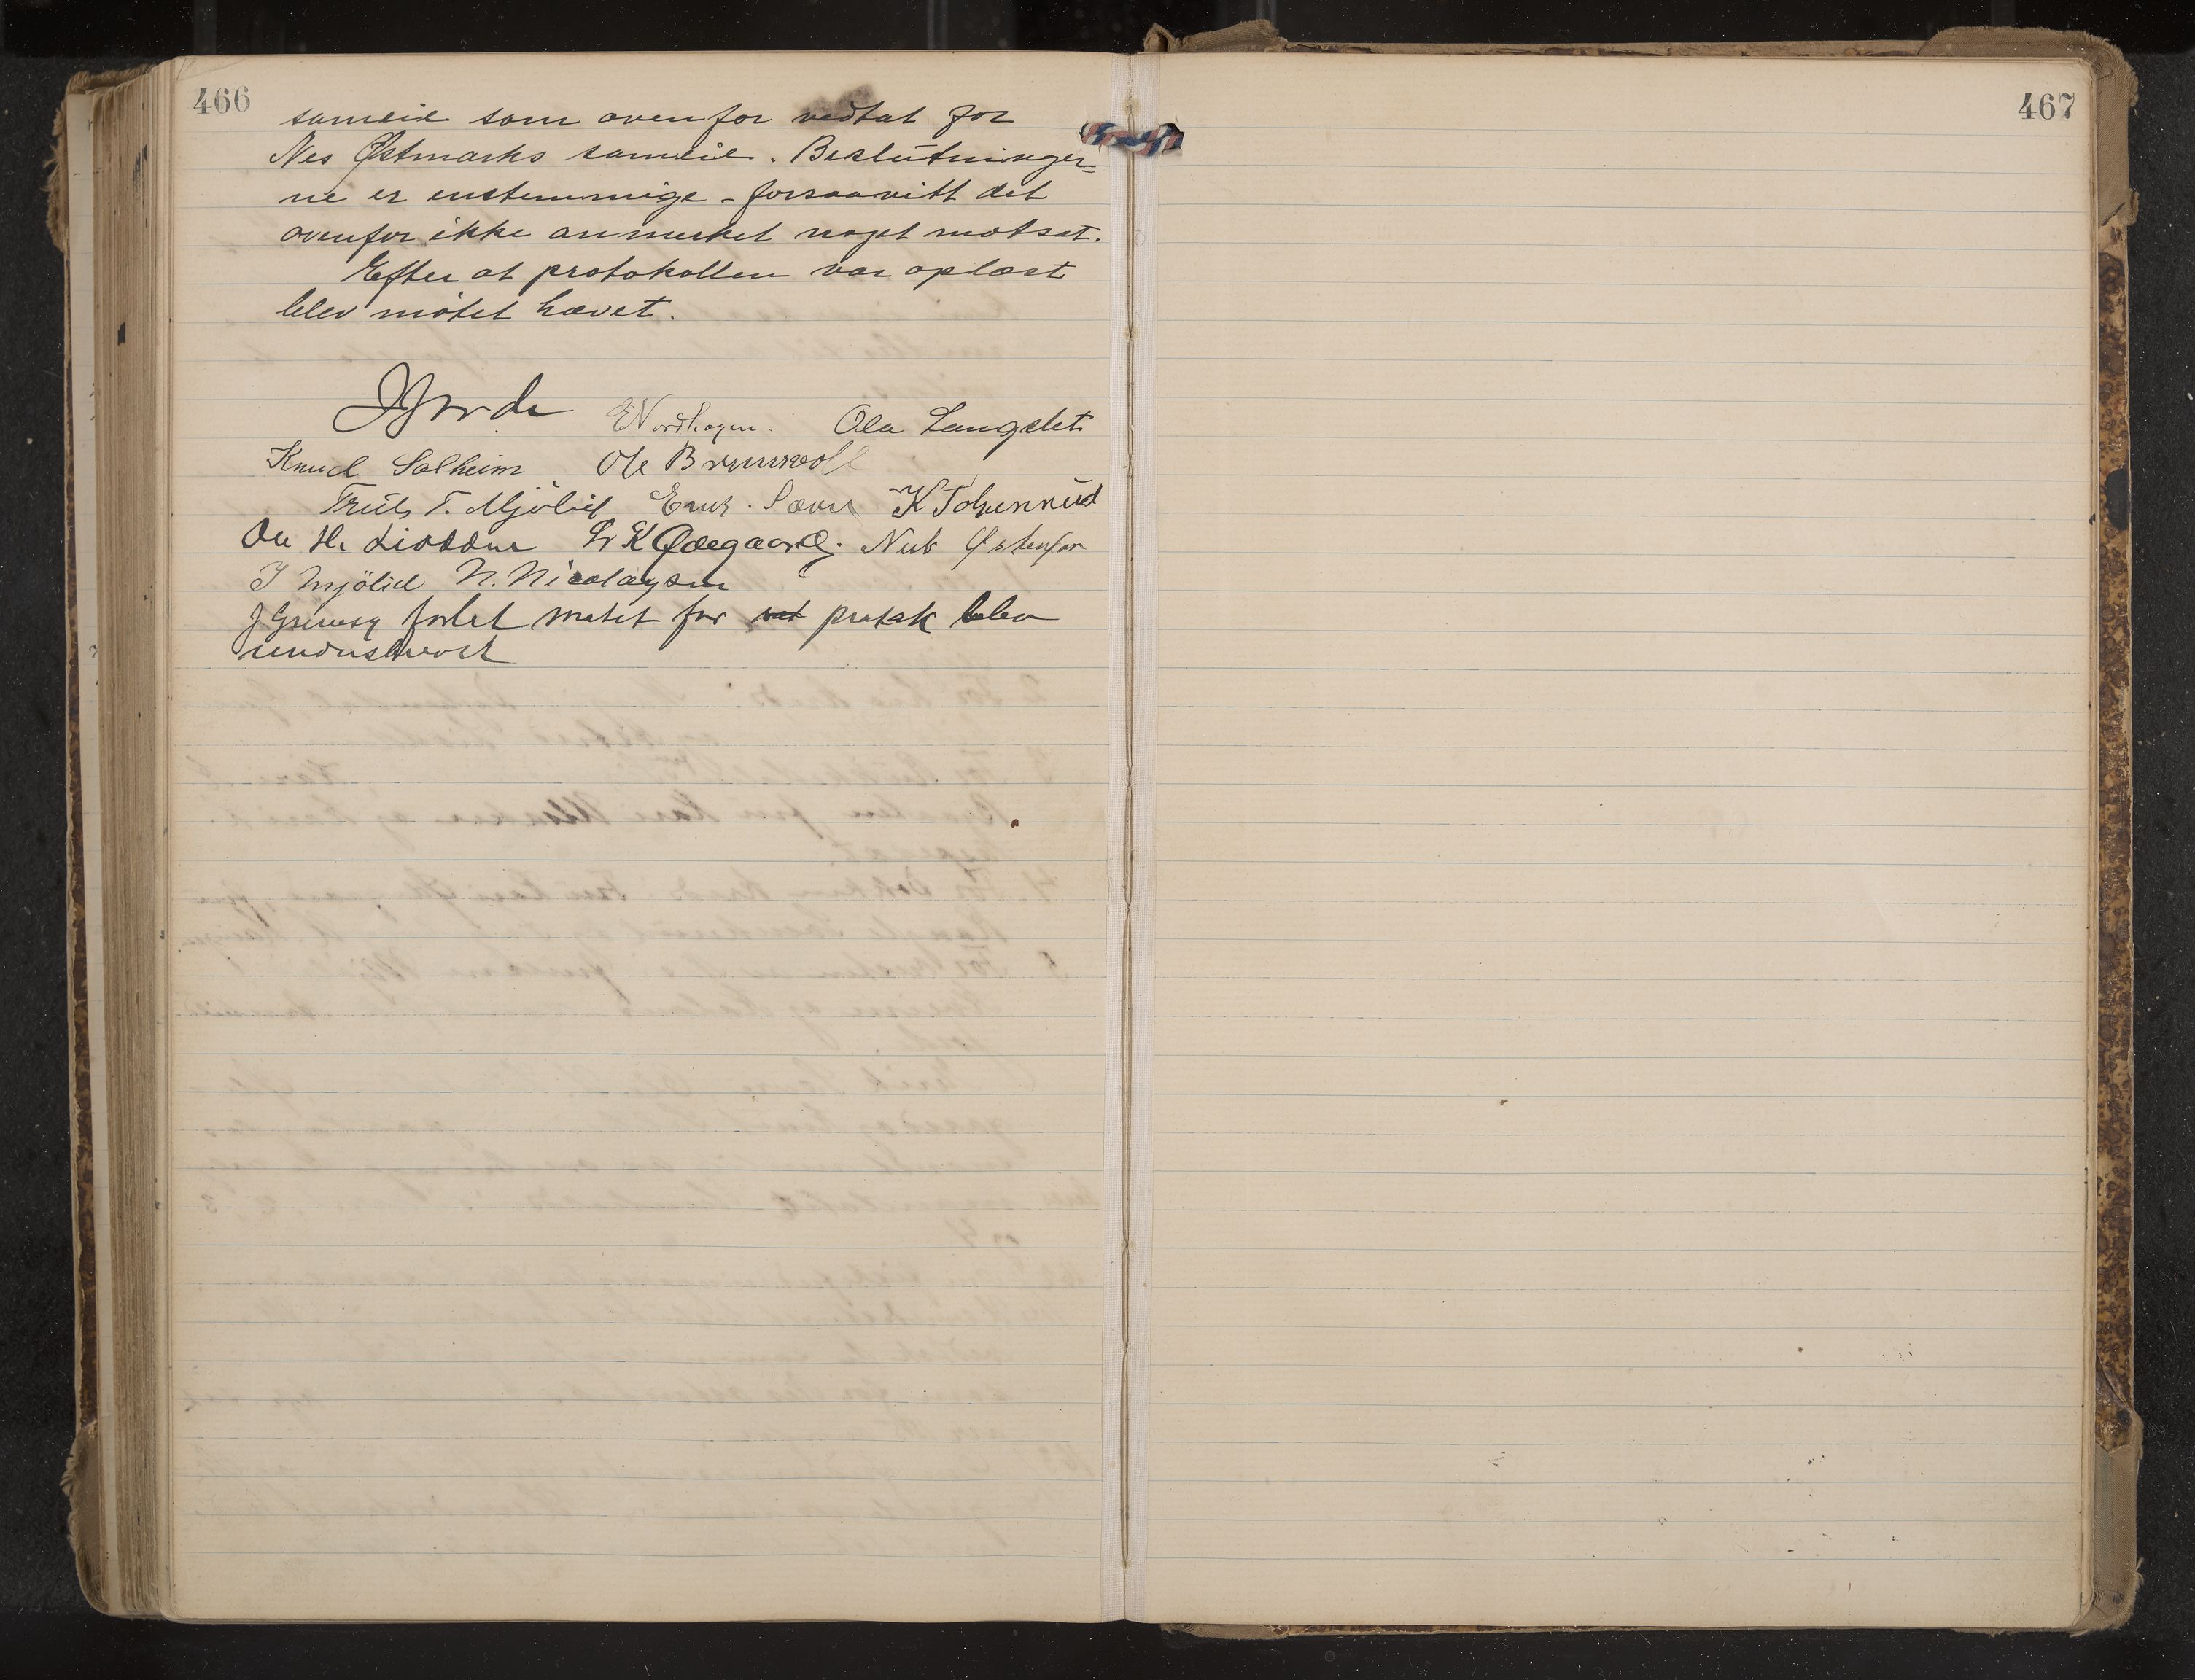 466
sameie som ovenfor vedtat for
Nes Østmarks sameie. Beslutninger=
ne er enstemmige - forsaavitt det
ovenfor ikke anmerket noget motsat.
Efter at protokollen var oplæst
blev møtet hævet.
ENordhagen. Ola Langslet
Knud Solheim Ole Brunsvoll
Truls T. Mjölid Erik Sævre K Tolsrud
Ole H. Liodden Kr K Ødegaard. Nub Østenfor
T Mjölid N. Nicolaysen
forlot møtet før protok blev
underskrevet
467